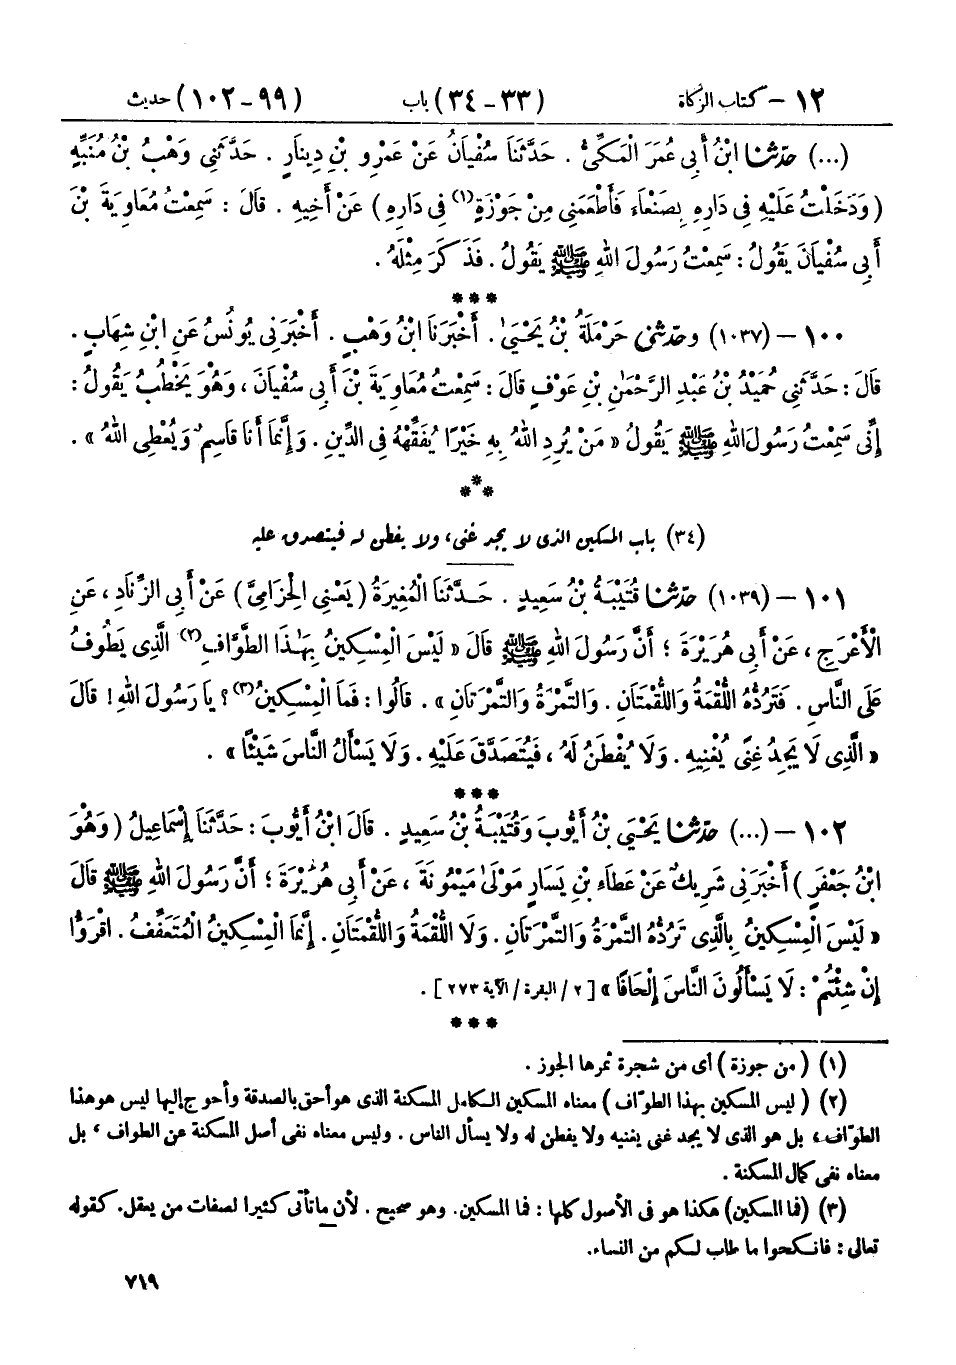 ١٢ – كتاب الزكاة (٣٣-٣٤) باب (٩٩-١٠٢) حديث
(...) حدّثنا ابْنُ أَبِي عُمَرَ الْمَكِّيُّ . حَدَّثَنَا سُفْيَانُ عَنْ عَمْرِو بْنِ دِينَارٍ . حَدَّثَنِي وَهْبُ بْنُ مُنَبِّهٍ
( وَدَخَلْتُ عَلَيْهِ فِي دَارِهِ بِصَنْعَاءَ فَأَطْعَمَنِي مِنْ جَوْزَةٍ(١) فِي دَارِهِ ) عَنْ أَخِيهِ . قَالَ : سَمِعْتُ مُعَاوِيَةَ بْنَ
أَبِي سُفْيَانَ يَقُولُ : سَمِعْتُ رَسُولَ اللهِ ﷺ يَقُولُ . فَذَكَرَ مِثْلَهُ .
***
١٠٠ – (١٠٣٧) وحدّثني حَرْمَلَةُ بْنُ يَحْيَىٰ . أَخْبَرَنَا ابْنُ وَهْبٍ . أَخْبَرَنِي يُونُسُ عَنِ ابْنِ شِهَابٍ .
قَالَ : حَدَّثَنِي حُمَيْدُ بْنُ عَبْدِ الرَّحْمٰنِ بْنِ عَوْفٍ قَالَ : سَمِعْتُ مُعَاوِيَةَ بْنَ أَبِي سُفْيَانَ ، وَهُوَ يَخْطُبُ يَقُولُ :
إِنِّي سَمِعْتُ رَسُولَ اللهِ ﷺ يَقُولُ « مَنْ يُرِدِ اللهُ بِهِ خَيْرًا يُفَقِّهْهُ فِي الدِّينِ . وَإِنَّمَا أَنَا قَاسِمٌ وَيُعْطِي اللهُ » .
***
(٣٤) باب المسكين الذى لا يجد غنى، ولا يفطن له فيتصدق عليه
١٠١ – (١٠٣٩) حدّثنا قُتَيْبَةُ بْنُ سَعِيدٍ . حَدَّثَنَا الْمُغِيرَةُ ( يَعْنِي الْحِزَامِيَّ ) عَنْ أَبِي الزِّنَادِ ، عَنِ
الْأَعْرَجِ ، عَنْ أَبِي هُرَيْرَةَ ؛ أَنَّ رَسُولَ اللهِ ﷺ قَالَ « لَيْسَ الْمِسْكِينُ بِهٰذَا الطَّوَّافِ(٢) الَّذِي يَطُوفُ
عَلَى النَّاسِ . فَتَرُدُّهُ اللُّقْمَةُ وَاللُّقْمَتَانِ . وَالتَّمْرَةُ وَالتَّمْرَتَانِ » . قَالُوا : فَمَا الْمِسْكِينُ(٣) ؟ يَا رَسُولَ اللهِ ! قَالَ
« الَّذِي لَا يَجِدُ غِنًى يُغْنِيهِ . وَلَا يُفْطَنُ لَهُ ، فَيُتَصَدَّقَ عَلَيْهِ . وَلَا يَسْأَلُ النَّاسَ شَيْئًا » .
***
١٠٢ – (...) حدّثنا يَحْيَى بْنُ أَيُّوبَ وَقُتَيْبَةُ بْنُ سَعِيدٍ . قَالَ ابْنُ أَيُّوبَ : حَدَّثَنَا إِسْمَاعِيلُ ( وَهُوَ
ابْنُ جَعْفَرٍ ) أَخْبَرَنِي شَرِيكٌ عَنْ عَطَاءِ بْنِ يَسَارٍ مَوْلَىٰ مَيْمُونَةَ ، عَنْ أَبِي هُرَيْرَةَ ؛ أَنَّ رَسُولَ اللهِ ﷺ قَالَ
« لَيْسَ الْمِسْكِينُ بِالَّذِي تَرُدُّهُ التَّمْرَةُ وَالتَّمْرَتَانِ . وَلَا اللُّقْمَةُ وَاللُّقْمَتَانِ . إِنَّمَا الْمِسْكِينُ الْمُتَعَفِّفُ . اقْرَؤُا
إِنْ شِئْتُمْ : لَا يَسْأَلُونَ النَّاسَ إِلْحَافًا » [ ٢ / البقرة / الآية ٢٧٣ ] .
***
(١) ( من جوزة ) أى من شجرة ثمرها الجوز .
(٢) ( ليس المسكين بهذا الطوّاف ) معناه المسكين الكامل المسكنة الذى هو أحق بالصدقة وأحوج إليها ليس هو هذا
الطوّاف، بل هو الذى لا يجد غنى يغنيه ولا يفطن له ولا يسأل الناس . وليس معناه نفى أصل المسكنة عن الطواف ، بل
معناه نفى كمال المسكنة .
(٣) (فما المسكين) هكذا هو فى الأصول كلها : فما المسكين. وهو صحيح . لأن ما تأتى كثيرا لصفات من يعقل. كقوله
تعالى : فانكحوا ما طاب لكم من النساء.
٧١٩